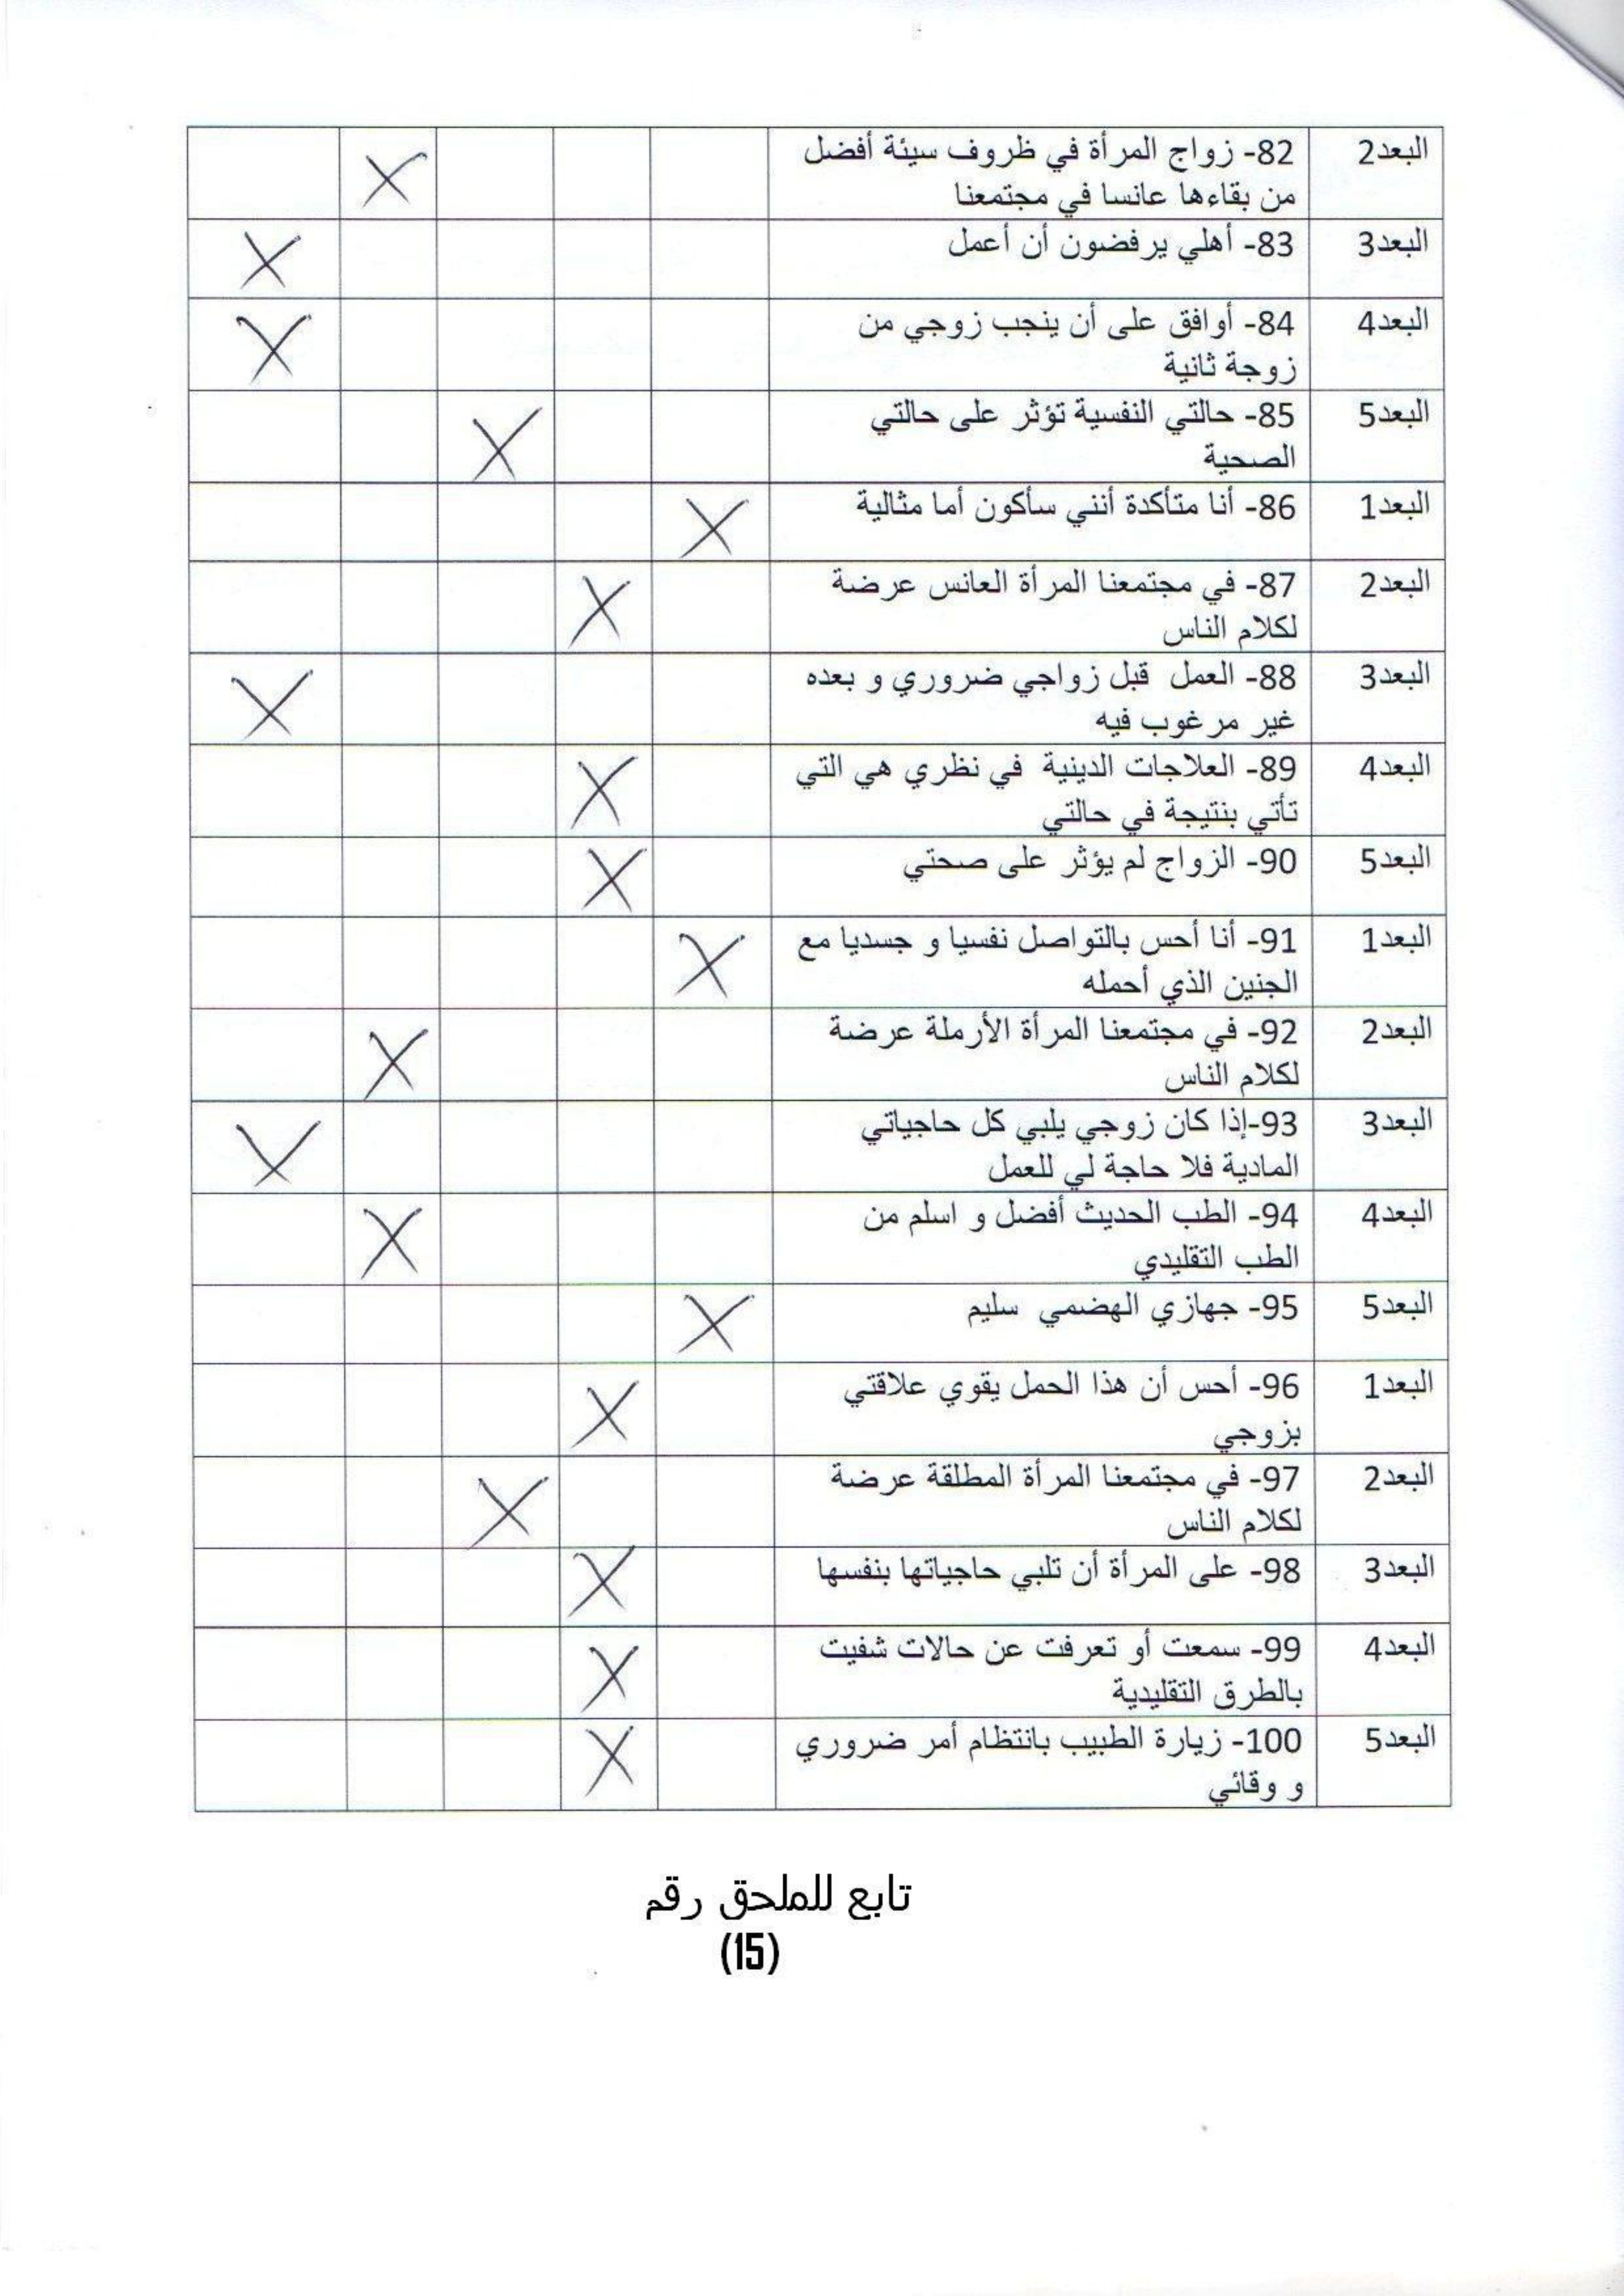 البعد2 82- زواج المرأة في ظروف سيئة أفضل
من بقاءها عانسا في مجتمعنا
البعد3 83- أهلي يرفضون أن أعمل
البعد4 84- أوافق على أن ينجب زوجي من
زوجة ثانية
البعد5 85- حالتي النفسية تؤثر على حالتي
الصحية
البعد1 86- أنا متأكدة أنني سأكون أما مثالية
البعد2 87- في مجتمعنا المرأة العانس عرضة
لكلام الناس
البعد3 88- العمل قبل زواجي ضروري و بعده
غير مرغوب فيه
البعد4 89- العلاجات الدينية في نظري هي التي
تأتي بنتيجة في حالتي
البعد5 90- الزواج لم يؤثر على صحتي
البعد1 91- أنا أحس بالتواصل نفسيا و جسديا مع
الجنين الذي أحمله
البعد2 92- في مجتمعنا المرأة الأرملة عرضة
لكلام الناس
البعد3 93-إذا كان زوجي يلبي كل حاجياتي
المادية فلا حاجة لي للعمل
البعد4 94- الطب الحديث أفضل و اسلم من
الطب التقليدي
البعد5 95- جهازي الهضمي سليم
البعد1 96- أحس أن هذا الحمل يقوي علاقتي
بزوجي
البعد2 97- في مجتمعنا المرأة المطلقة عرضة
لكلام الناس
البعد3 98- على المرأة أن تلبي حاجياتها بنفسها
البعد4 99- سمعت أو تعرفت عن حالات شفيت
بالطرق التقليدية
البعد5 100- زيارة الطبيب بانتظام أمر ضروري
و وقائي
تابع للملحق رقم
(15)